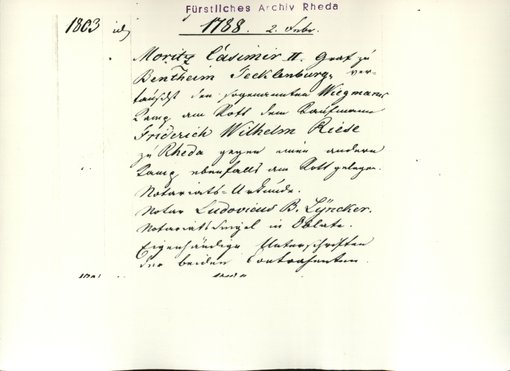 Fürstliches Archiv Rheda
1803 1788. 2. Febr.
Moritz Casimir II. Graf zu
Bentheim Tecklenburg, ver-
tauscht den sogenannten Wiegmanns
Kamp am Rott dem Kaufmann
Friderich Wilhelm Reese
zu Rheda gegen einen andern
Kamp ebenfalls am Rott gelegen.
Notariats-Urkunde.
Notar Ludovicus B. Lyncker.
Notariatssiegel in Oblate.
Eigenhändige Unterschriften
der beiden Contrahenten.